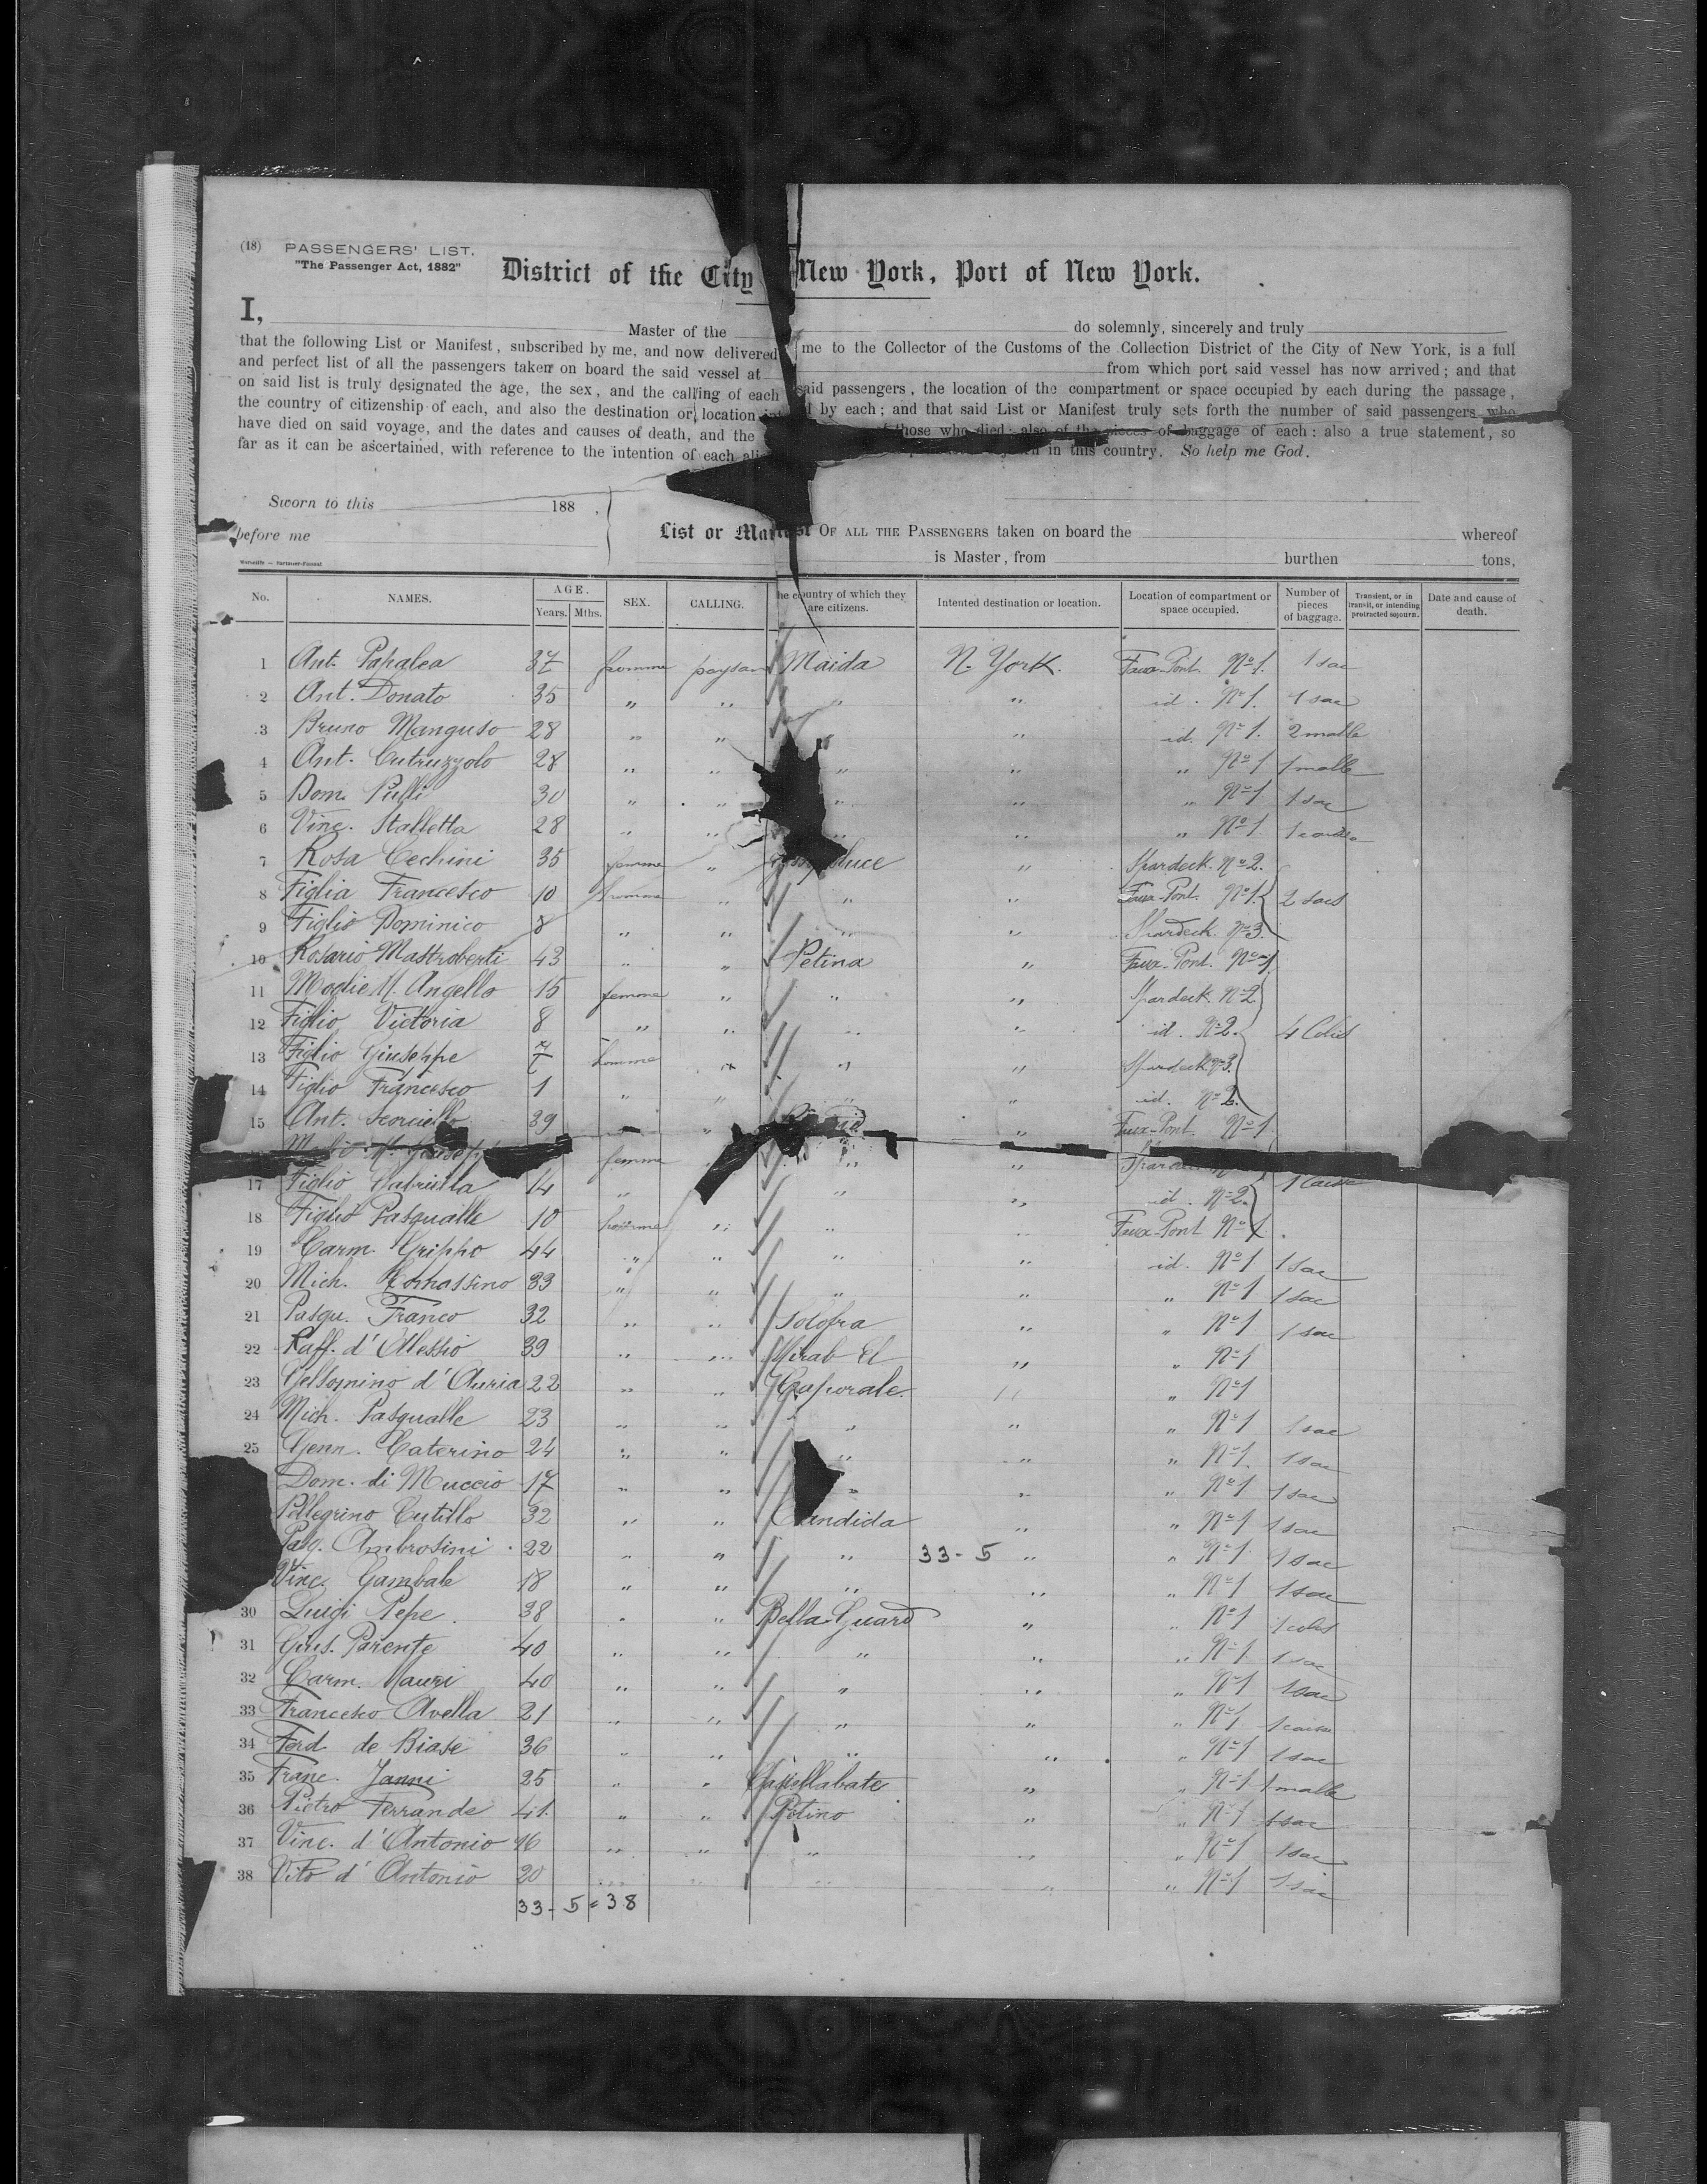 (18) PASSENGERS' LIST.
"The Passenger Act, 1882"
District of the City New York, Port of New York.
I, Master of the do solemnly, sincerely and truly
that the following List or Manifest, subscribed by me, and now delivered me to the Collector of the Customs of the Collection District of the City of New York, is a full
and perfect list of all the passengers taken on board the said vessel at from which port said vessel has now arrived; and that
on said list is truly designated the age, the sex, and the calling of each said passengers, the location of the compartment or space occupied by each during the passage,
the country of citizenship of each, and also the destination or location by each; and that said List or Manifest truly sets forth the number of said passengers who
have died on said voyage, and the dates and causes of death, and the those who died: also of the pieces of baggage of each: also a true statement, so
far as it can be ascertained, with reference to the intention of each in this country. So help me God.
Sworn to this 188
before me
List or Manifest OF ALL THE PASSENGERS taken on board the whereof
is Master, from burthen tons,
No. NAMES. AGE. Years. Mths. SEX. CALLING. he country of which they are citizens. Intented destination or location. Location of compartment or space occupied. Number of pieces of baggage. Transient, or in transit, or intending protracted sojourn. Date and cause of death.
1 Ant. Papalea 37 homme paysan Maida N. York. Faux-Pont. No 1. 1 sac
2 Ant. Donato 35 " " " " id. No 1. 1 sac
3 Bruno Manguso 28 " " " id. No 1. 2 malle
4 Ant. Cutruzzolo 28 " " " " " No 1 1 malle
5 Dom. Pulli 30 " " " " " No 1 1 sac
6 Vinc. Stalletta 28 " " " " " No 1.
7 Rosa Cechini 35 femme " " Spardeck. No 2.
8 Figlia Francesco 10 homme " " " Faux-Pont. No 1. 2 sacs
9 Figlio Dominico 8 " " " " Spardeck. No 3.
10 Rosario Mastroberti 43 " " Petina " Faux-Pont. No 1
11 Moglie M. Angello 15 femme " " " Spardeck. No 2
12 Figlio Victoria 8 " " " " id. No 2. 4 Colis
13 Figlio Giuseppe 7 homme " " " Spardeck No 3.
14 Figlio Francesco 1 " " " " id. No 2.
15 Ant. Scorciello 39 " " Faux-Pont. No 1
femme " "
17 Figlio Gabriella 14 " " " id. No 2.
18 Figlio Pasqualle 10 homme " " " Faux-Pont No 1.
19 Carm. Grippo 44 " " " " id. No 1 1 sac
20 Mich. Tomassino 33 " " " " " No 1 1 sac
21 Pasqu. Franco 32 " " Solofra " " No 1 1 sac
22 Raff. d'Alessio 39 " " Mirab El " " No 1
23 Gelsomino d'Auria 22 " " Caporale. " " No 1
24 Mich. Pasqualle 23 " " " " " No 1 1 sac
25 Genn. Caterino 24 " " " " " No 1. 1 sac
Dom. di Muccio 17 " " " " " No 1 1 sac
Pellegrino Cutillo 32 " " Candida " " No 1 1 sac
Pasq. Ambrosini 22 " " " 33-5 " " No 1. 1 sac
Vinc. Gambale 18 " " " " " No 1 1 sac
30 Luigi Pepe. 38 " " Bella Guard " " No 1 1 colis
31 Gius. Parente 40 " " " " " No 1 1 sac
32 Carm. Mauri 40 " " " " " No 1 1 sac
33 Francesco Avella 21 " " " " " No 1 1 caisse
34 Ferd. de Biase 36 " " " " " No 1 1 sac
35 Franc. Janni 25 " " Castellabate " " No 1 1 malle
36 Pietro Ferrande 41. " " Petino " " No 1 1 sac
37 Vinc. d'Antonio 16 " " " " " No 1 1 sac
38 Vito d'Antonio 20 " " " " " No 1 1 sac
33-5=38